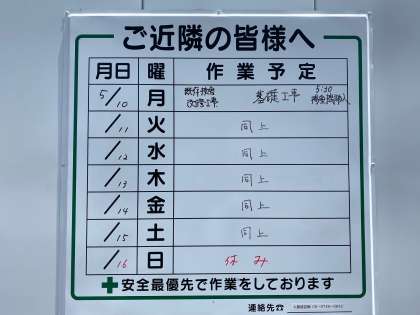 ご近隣の皆様へ
月日 曜 作業予定
5/10 月 既存校舎改修工事 基礎工事 5:30
/11 火 同上
/12 水 同上
/13 木 同上
/14 金 同上
/15 土 同上
/16 日 休み
安全最優先で作業をしております
連絡先☎